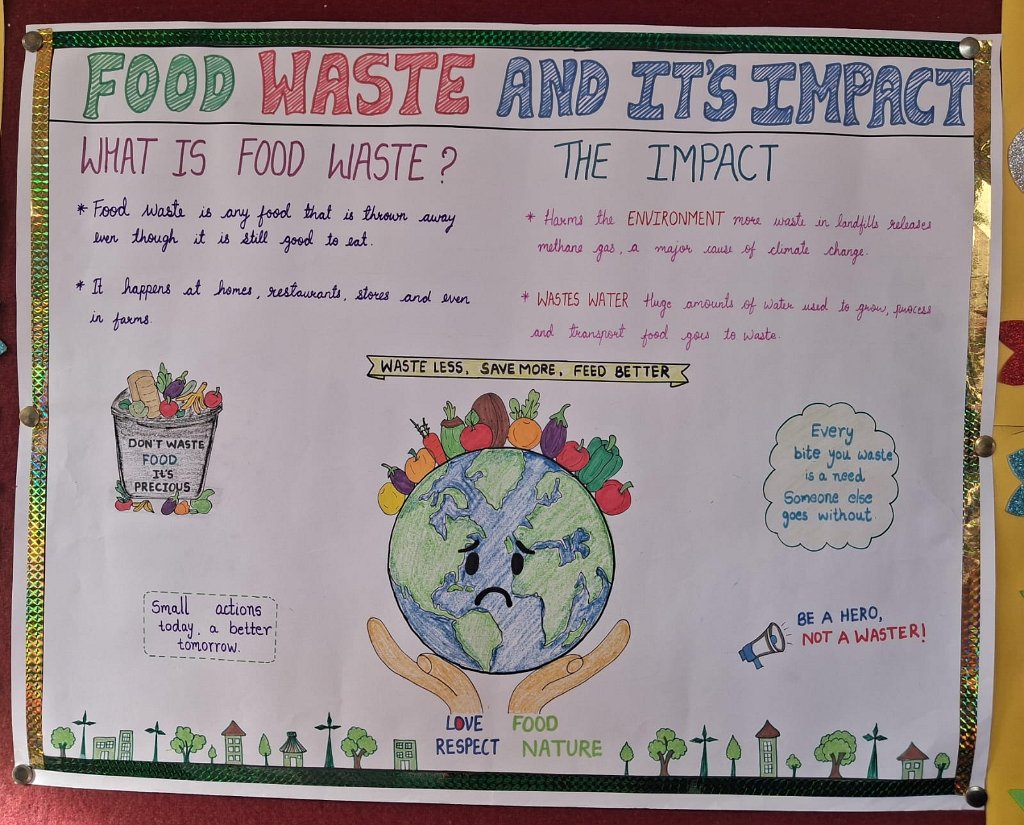 FOOD WASTE AND IT'S IMPACT
WHAT IS FOOD WASTE?
* Food waste is any food that is thrown away
even though it is still good to eat.
* It happens at homes, restaurants, stores and even
in farms.
THE IMPACT
* Harms the ENVIRONMENT more waste in landfills releases
methane gas, a major cause of climate change.
* WASTES WATER Huge amounts of water used to grow, process
and transport food goes to waste.
WASTE LESS, SAVE MORE, FEED BETTER
DON'T WASTE
FOOD
It's
PRECIOUS
Every
bite you waste
is a need
Someone else
goes without.
Small actions
today, a better
tomorrow.
BE A HERO,
NOT A WASTER!
LOVE FOOD
RESPECT NATURE